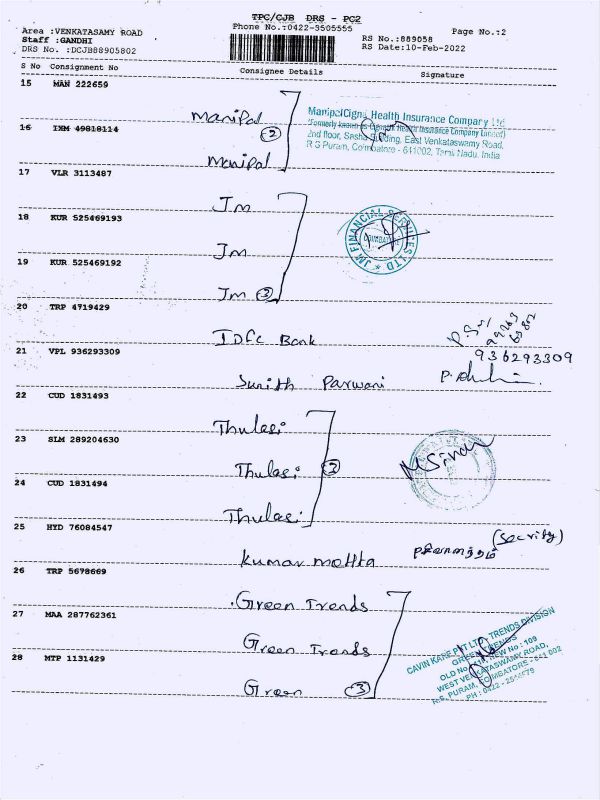 TPC/CJB DRS - PC2
Phone No.:0422-3505555
Page No.:2
Area :VENKATASAMY ROAD
Staff :GANDHI
DRS No. :DCJB88905802
RS No.:889058
RS Date:10-Feb-2022
S No Consignment No Consignee Details Signature
15 MAN 222659
Manipal
16 IXM 49818114
2
Manipal
ManipalCigna Health Insurance Company Ltd
(Formerly known as Cigna Health Insurance Company Limited)
2nd floor, Building, East Venkataswamy Road,
R S Puram, Coimbatore - 641002, Tamil Nadu, India
17 VLR 3113487
Jm
18 KUR 525469193
Jm
JM FINANCIAL SERVICES LTD
COIMBATORE
19 KUR 525469192
Jm 3
20 TRP 4719429
IDFC Bank
21 VPL 936293309
936293309
Sunith Parwani
22 CUD 1831493
Thulasi
23 SLM 289204630
Thulasi
24 CUD 1831494
Thulasi
25 HYD 76084547
Kumar mehta
(Security)
26 TRP 5678669
Green Trends
27 MAA 287762361
Green Trends
28 MTP 1131429
Green 3
CAVIN KARE PVT LTD, TRENDS DIVISION
GREEN TRENDS
OLD No. NEW No : 109
WEST VENKATASWAMY ROAD,
R.S. PURAM, COIMBATORE - 641 002
PH : 0422 -